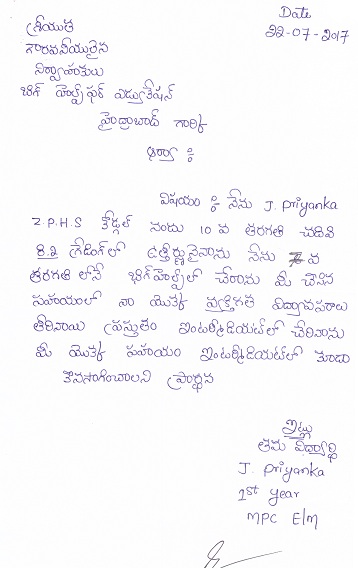 Date
22-07-2017
శ్రీయుత
గౌరవనీయులైన
నిర్వాహకులు
బిగ్ హెల్ప్ ఫర్ ఎడ్యుకేషన్
హైద్రాబాద్ గారికి
ఆర్యా :
విషయం : నేను J. Priyanka
Z.P.H.S కోడ్గల్ నందు 10 వ తరగతి చదివి
8.2 గ్రేడింగ్ లో ఉత్తీర్ణురైనాను నేను 7 వ
తరగతి లోనే బిగ్ హెల్ప్ లో చేరాను మీ చేసిన
సహాయంలో నా యొక్క వ్యక్తిగత విద్యావసరాలు
తీరినాయి ప్రస్తుతం ఇంటర్మీడియట్ లో చేరినాను
మీ యొక్క సహాయం ఇంటర్మీడియట్ లో కూడా
కొనసాగించాలని ప్రార్థన
ఇట్లు
తమ విద్యార్థి
J. Priyanka
1st year
MPC E/M